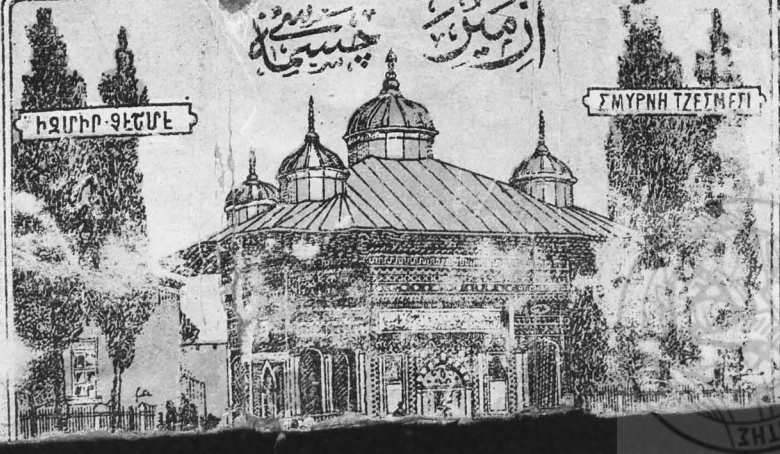 ازمير چشمه سی
ԻԶՄԻՐ·ՉԷՇՄԷ
ΣΜΥΡΝΗ ΤΖΕΣΜΕΣΙ